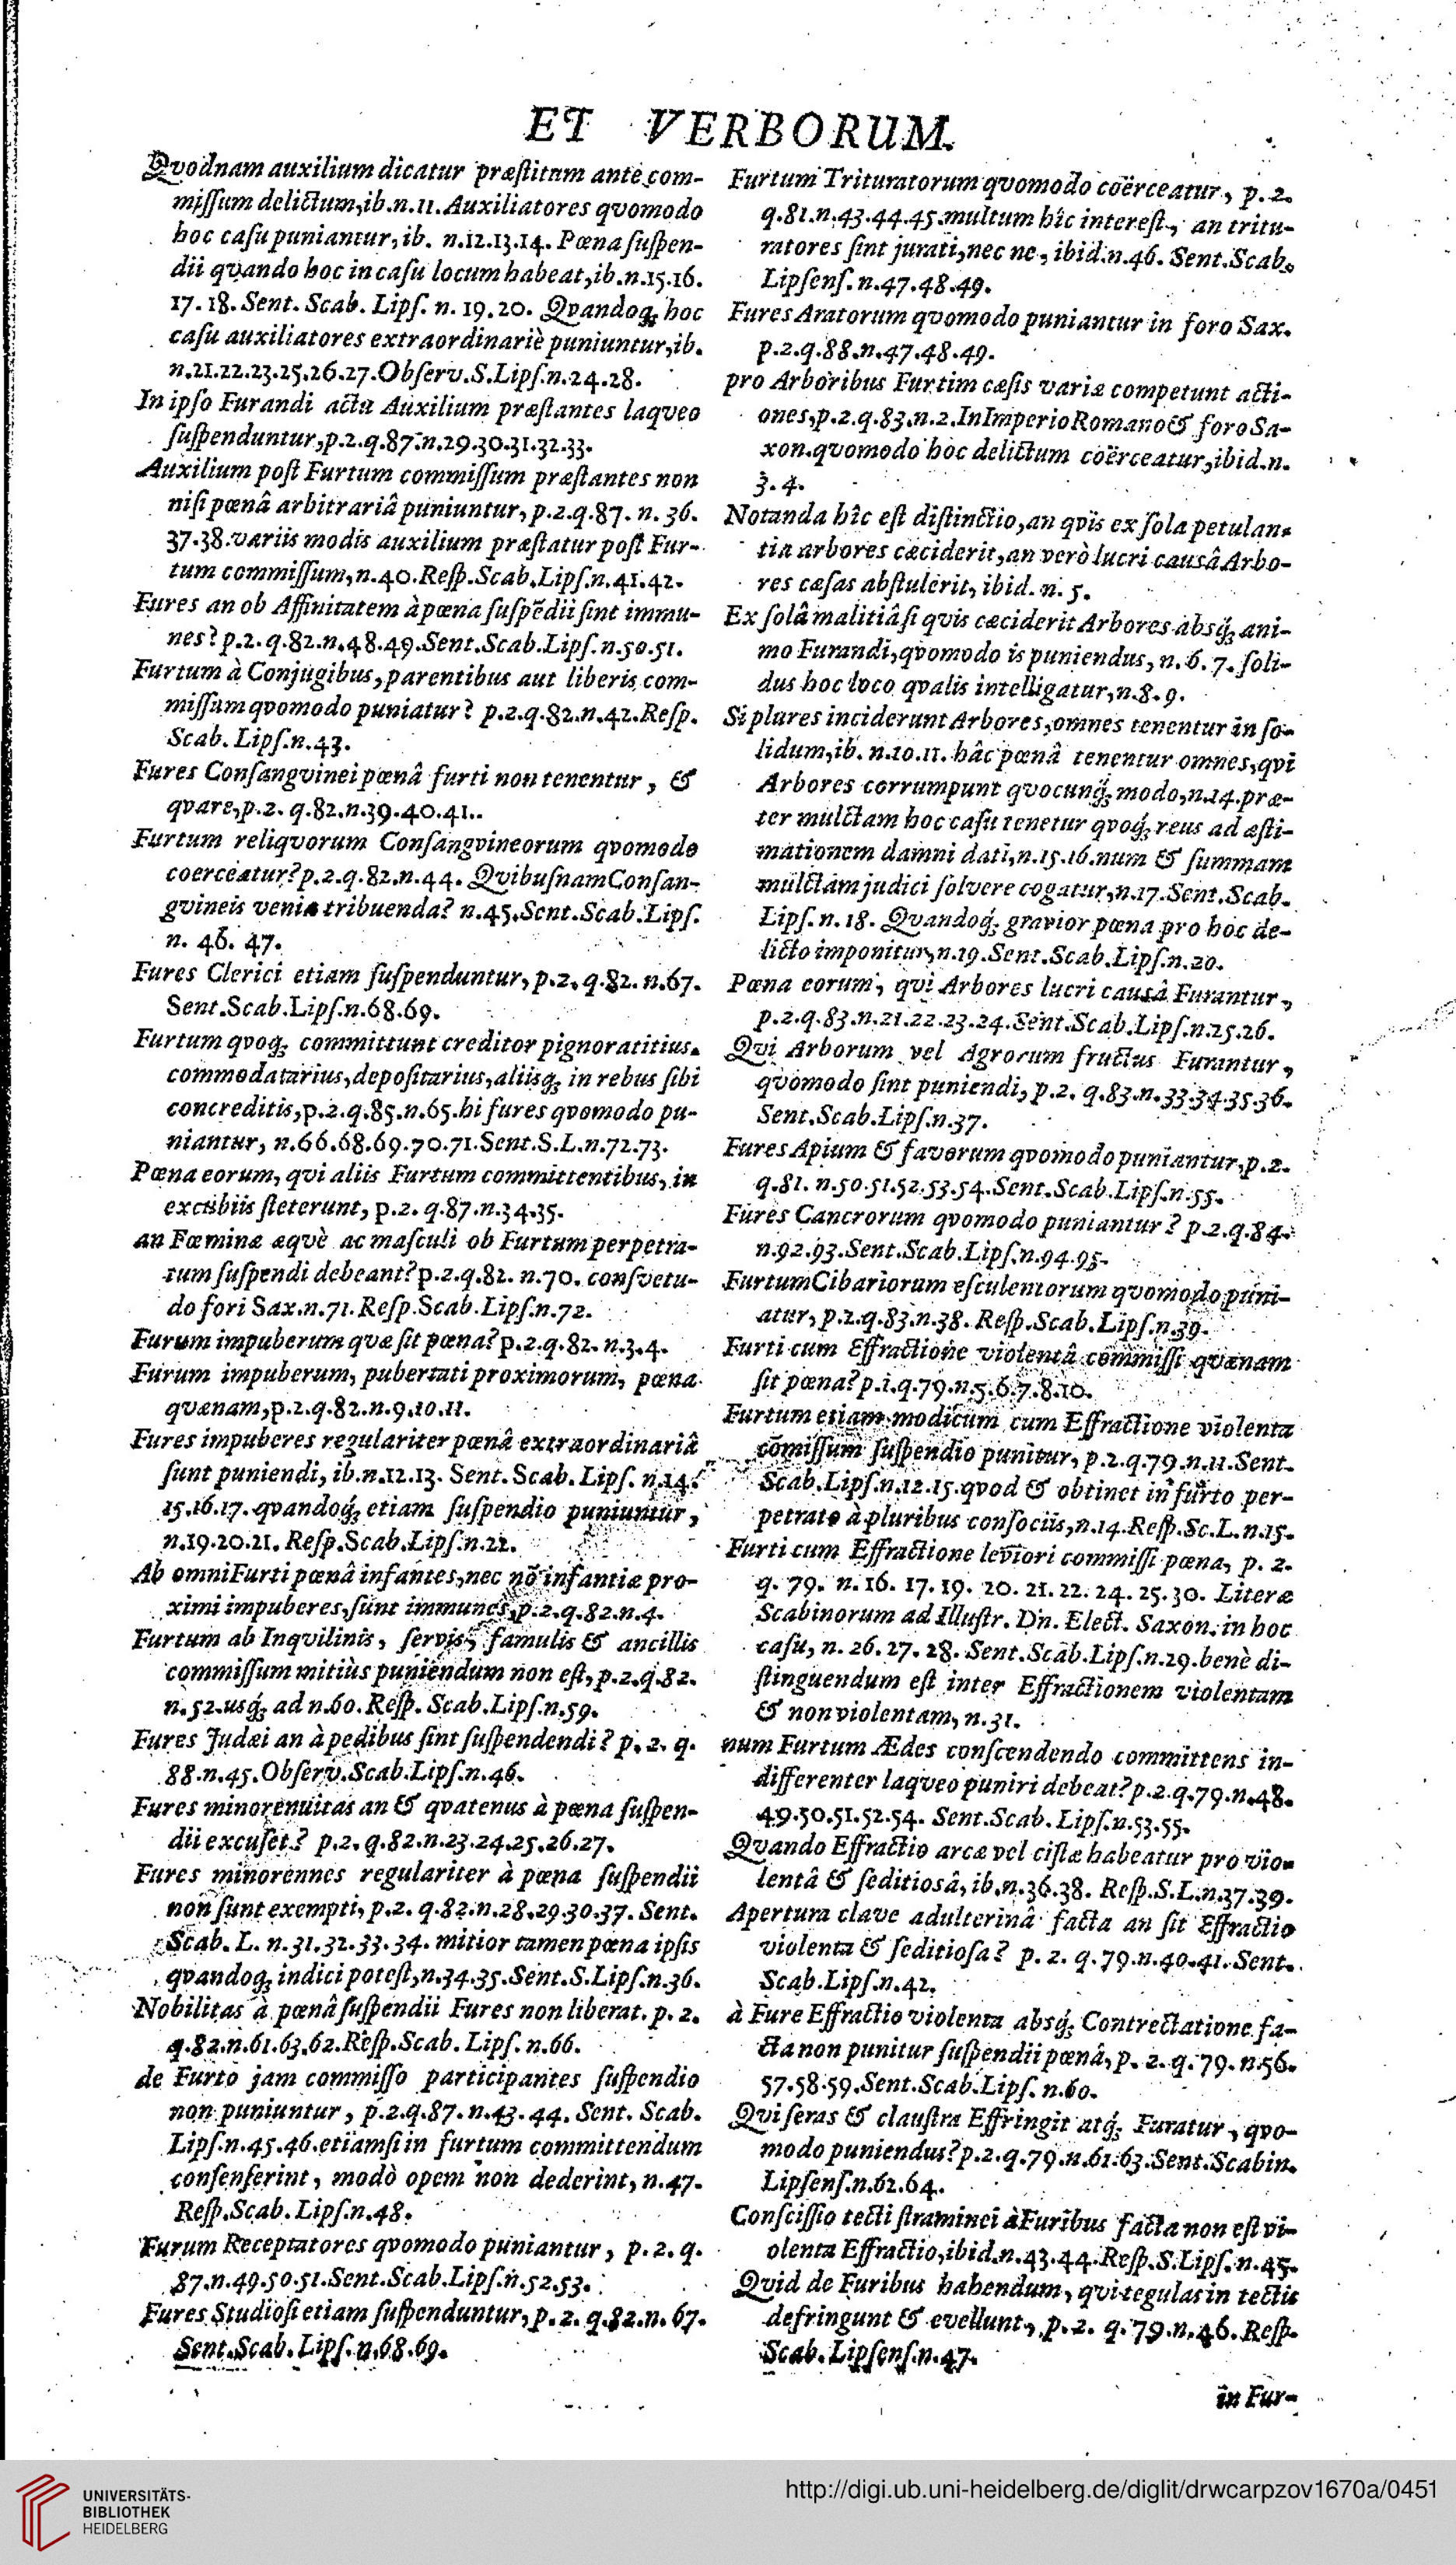 ET VERBORUM.
Qvodnam auxilium dicatur præſtitum ante com-
miſſum delictum, ib.n.11. Auxiliatores qvomodo
hoc caſu puniantur, ib. n.12.13.14. Pœna ſuſpen-
dii qvando hoc in caſu locum habeat, ib.n.15.16.
17. 18. Sent. Scab. Lipſ. n. 19. 20. Qvandoq; hoc
caſu auxiliatores extraordinariè puniuntur, ib.
n.21.22.23.25.26.27. Obſerv. S. Lipſ.n.24.28.
In ipſo Furandi actu Auxilium præſtantes laqveo
ſuſpenduntur, p.2.q.87.n.29.30.31.32.33.
Auxilium poſt Furtum commiſſum præſtantes non
niſi pœnâ arbitrariâ puniuntur, p.2.q.87. n. 36.
37.38. variis modis auxilium præſtatur poſt Fur-
tum commiſſum, n.40. Reſp. Scab. Lipſ.n.41.42.
Fures an ob Affinitatem à pœna ſuſpēdii ſint immu-
nes? p.2.q.82.n.48.49. Sent. Scab. Lipſ.n.50.51.
Furtum à Conjugibus, parentibus aut liberis com-
miſſum qvomodo puniatur? p.2.q.82.n.42. Reſp.
Scab. Lipſ.n.43.
Fures Conſangvinei pœnâ furti non tenentur, &
qvare, p.2. q.82.n.39.40.41..
Furtum reliqvorum Conſangvineorum qvomodo
coerceatur? p.2.q.82.n.44. Qvibuſnam Conſan-
gvineis venia tribuenda? n.45. Sent. Scab. Lipſ.
n. 46. 47.
Fures Clerici etiam ſuſpenduntur, p.2. q.82. n.67.
Sent. Scab. Lipſ.n.68.69.
Furtum qvoq; committunt creditor pignoratitius.
commodatarius, depoſitarius, aliisq; in rebus ſibi
concreditis, p.2.q.85.n.65. hi fures qvomodo pu-
niantur, n.66.68.69.70.71. Sent. S.L.n.72.73.
Pœna eorum, qvi aliis Furtum committentibus, in
excubiis ſteterunt, p.2. q.87.n.34.35.
an Fœminæ æquè ac maſculi ob Furtum perpetra-
tum ſuſpendi debeant? p.2.q.82. n.70. conſvetu-
do fori Sax.n.71. Reſp. Scab. Lipſ.n.72.
Furum impuberum quæ ſit pœna? p.2.q.82. n.3.4.
Furum impuberum, pubertati proximorum, pœna
quænam, p.2.q.82.n.9.10.11.
Fures impuberes regulariter pœnâ extraordinariâ
ſunt puniendi, ib.n.12.13. Sent. Scab. Lipſ. n.14.
15.16.17. qvandoq; etiam ſuſpendio puniuntur,
n.19.20.21. Reſp. Scab. Lipſ.n.22.
Ab omni Furti pœnâ infantes, nec nō infantiæ pro-
ximi impuberes, ſunt immunes, p.2.q.82.n.4.
Furtum ab Inqvilinis, ſervis, famulis & ancillis
commiſſum mitiùs puniendum non eſt, p.2.q.82.
n.52. usq; ad n.60. Reſp. Scab. Lipſ.n.59.
Fures Judæi an à pedibus ſint ſuſpendendi? p. 2. q.
88.n.45. Obſerv. Scab. Lipſ.n.46.
Fures minorennitas an & qvatenus à pœna ſuſpen-
dii excuſet? p.2. q.82.n.23.24.25.26.27.
Fures minorennes regulariter à pœna ſuſpendii
non ſunt exempti, p.2. q.82.n.28.29.30.37. Sent.
Scab. L. n.31.32.33.34. mitior tamen pœna ipſis
qvandoq; indici poteſt, n.34.35. Sent. S. Lipſ.n.36.
Nobilitas à pœnâ ſuſpendii Fures non liberat. p. 2.
q.82.n.61.63.62. Reſp. Scab. Lipſ. n.66.
de Furto jam commiſſo participantes ſuſpendio
non puniuntur, p.2.q.87. n.43. 44. Sent. Scab.
Lipſ.n.45.46. etiamſi in furtum committendum
conſenſerint, modò opem non dederint, n.47.
Reſp. Scab. Lipſ.n.48.
Furum Receptatores qvomodo puniantur, p. 2. q.
87.n.49.50.51. Sent. Scab. Lipſ.n.52.53.
Fures Studioſi etiam ſuſpenduntur, p. 2. q.82.n. 67.
Sent. Scab. Lipſ.n.68.69.
Furtum Trituratorum qvomodo coërceatur, p. 2.
q.81.n.43.44.45. multum hîc intereſt, an tritu-
ratores ſint jurati, nec ne, ibid.n.46. Sent. Scab.
Lipſenſ.n.47.48.49.
Fures Aratorum qvomodo puniantur in foro Sax.
p.2.q.88.n.47.48.49.
pro Arboribus Furtim cæſis variæ competunt acti-
ones, p.2.q.83.n.2. In Imperio Romano & foro Sa-
xon. qvomodo hoc delictum coërceatur, ibid.n.
3. 4.
Notanda hîc eſt diſtinctio, an qvis ex ſola petulan-
tia arbores cæciderit, an verò lucri causâ Arbo-
res cæſas abſtulerit, ibid. n. 5.
Ex ſolâ malitiâ ſi quis cæciderit Arbores absq; ani-
mo Furandi, qvomodo is puniendus, n. 6. 7. ſoli-
dus hoc loco qvalis intelligatur, n.8.9.
Si plures inciderunt Arbores, omnes tenentur in ſo-
lidum, ib. n.10.11. hâc pœnâ tenentur omnes, qvi
Arbores corrumpunt qvocunq; modo, n.14. præ-
ter mulctam hoc caſu tenetur qvoq; reus ad æſti-
mationem damni dati, n.15.16. num & ſummam
mulctam judici ſolvere cogatur, n.17. Sent. Scab.
Lipſ. n. 18. Qvandoq; gravior pœna pro hoc de-
licto imponitur, n.19. Sent. Scab. Lipſ.n.20.
Pœna eorum, qvi Arbores lucri causâ Furantur,
p.2.q.83.n.21.22.23.24. Sent. Scab. Lipſ.n.25.26.
Qvi Arborum vel Agrorum fructus Furantur,
qvomodo ſint puniendi, p.2. q.83.n.33.34.35.36.
Sent. Scab. Lipſ.n.37.
Fures Apium & favorum qvomodo puniantur, p.2.
q.81. n.50.51.52.53.54. Sent. Scab. Lipſ.n.55.
Fures Cancrorum qvomodo puniantur? p.2.q.84.
n.92.93. Sent. Scab. Lipſ.n.94.95.
Furtum Cibariorum eſculentorum qvomodo puni-
atur, p.2.q.83.n.38. Reſp. Scab. Lipſ.n.39.
Furti cum Effractione violentâ commiſſi quænam
ſit pœna? p.2.q.79.n.5.6.7.8.10.
Furtum etiam modicum cum Effractione violenta
cōmiſſum ſuſpendio punitur, p.2.q.79.n.11. Sent.
Scab. Lipſ.n.12.15. qvod & obtinet in furto per-
petrato à pluribus conſociis, n.14. Reſp. Sc. L. n.15.
Furti cum Effractione leviori commiſſi pœna, p. 2.
q. 79. n. 16. 17. 19. 20. 21. 22. 24. 25. 30. Literæ
Scabinorum ad Illuſtr. Dn. Elect. Saxon. in hoc
caſu, n. 26. 27. 28. Sent. Scab. Lipſ.n.29. benè di-
ſtinguendum eſt inter Effractionem violentam
& non violentam, n.31.
num Furtum Ædes conſcendendo committens in-
differenter laqveo puniri debeat? p.2.q.79.n.48.
49.50.51.52.54. Sent. Scab. Lipſ.n.53.55.
Qvando Effractio arcæ vel ciſtæ habeatur pro vio-
lentâ & ſeditiosâ, ib.n.36.38. Reſp. S.L.n.37.39.
Apertura clave adulterinâ facta an ſit Effractio
violenta & ſeditioſa? p. 2. q. 79.n.40.41. Sent.
Scab. Lipſ.n.42.
à Fure Effractio violenta absq; Contrectatione fa-
cta non punitur ſuſpendii pœnâ, p. 2. q. 79. n.56.
57.58.59. Sent. Scab. Lipſ. n.60.
Qvi ſeras & clauſtra Effringit atq; Furatur, qvo-
modo puniendus? p.2.q.79.n.61.63. Sent. Scabin.
Lipſenſ.n.62.64.
Conſciſſio tecti ſtraminei à Furibus facta non eſt vi-
olenta Effractio, ibid.n.43.44. Reſp. S. Lipſ.n.45.
Qvid de Furibus habendum, qvi tegulas in tectis
defringunt & evellunt, p.2. q.79.n.46. Reſp.
Scab. Lipſenſ.n.47.
in Fur-
UNIVERSITÄTS-
BIBLIOTHEK
HEIDELBERG
http://digi.ub.uni-heidelberg.de/diglit/drwcarpzov1670a/0451